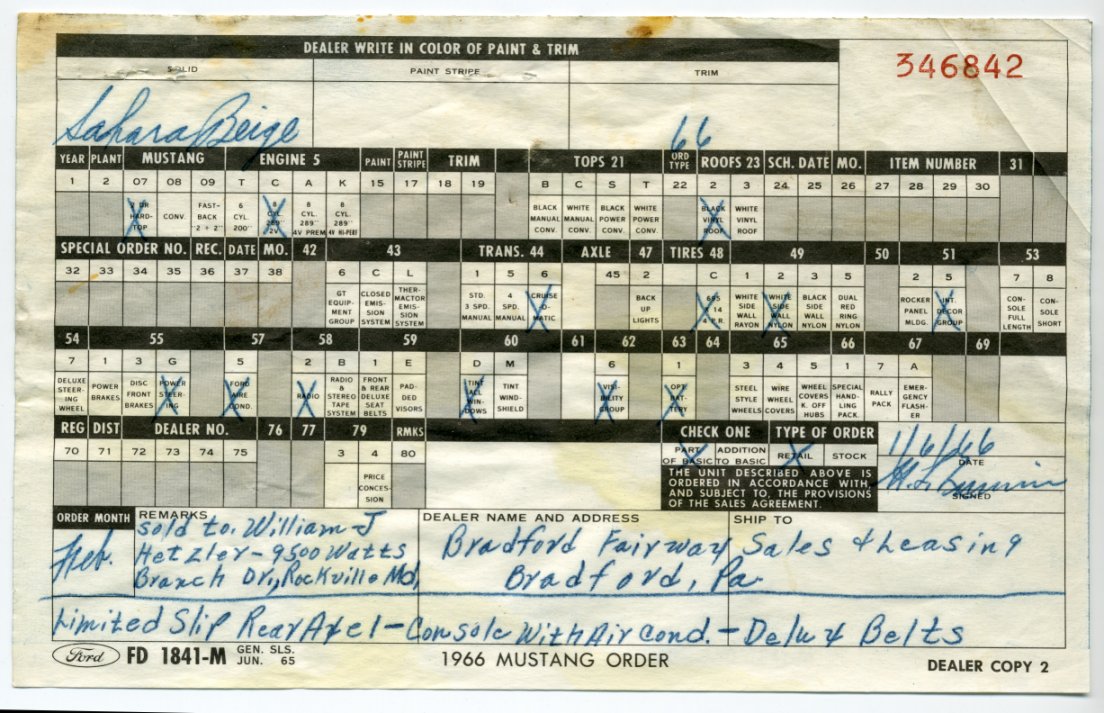 DEALER WRITE IN COLOR OF PAINT & TRIM
346842
SOLID PAINT STRIPE TRIM
Sahara Beige
66
YEAR PLANT MUSTANG ENGINE 5 PAINT PAINT STRIPE TRIM TOPS 21 ORD TYPE ROOFS 23 SCH. DATE MO. ITEM NUMBER 31
1 2 07 08 09 T C A K 15 17 18 19 B C S T 22 2 3 24 25 26 27 28 29 30
2 DR HARD-TOP CONV. FAST-BACK "2 + 2" 6 CYL. 200" 8 CYL. 289" 2V 8 CYL. 289" 4V PREM 8 CYL. 289" 4V HI-PERF BLACK MANUAL CONV. WHITE MANUAL CONV. BLACK POWER CONV. WHITE POWER CONV. BLACK VINYL ROOF WHITE VINYL ROOF
SPECIAL ORDER NO. REC. DATE MO. 42 43 TRANS. 44 AXLE 47 TIRES 48 49 50 51 53
32 33 34 35 36 37 38 6 C L 1 5 6 45 2 C 1 2 3 5 2 5 7 8
GT EQUIP-MENT GROUP CLOSED EMIS-SION SYSTEM THER-MACTOR EMIS-SION SYSTEM STD. 3 SPD. MANUAL 4 SPD. MANUAL CRUISE-O-MATIC BACK UP LIGHTS 695 14 4 P.R. WHITE SIDE WALL RAYON WHITE SIDE WALL NYLON BLACK SIDE WALL NYLON DUAL RED RING NYLON ROCKER PANEL MLDG. INT. DECOR GROUP CON-SOLE FULL LENGTH CON-SOLE SHORT
54 55 57 58 59 60 61 62 63 64 65 66 67 69
7 1 3 G 5 2 B 1 E D M 6 1 3 4 5 1 7 A
DELUXE STEER-ING WHEEL POWER BRAKES DISC FRONT BRAKES POWER STEER-ING FORD AIRE COND. RADIO RADIO & STEREO TAPE SYSTEM FRONT & REAR DELUXE SEAT BELTS PAD-DED VISORS TINT ALL WIN-DOWS TINT WIND-SHIELD VISI-BILITY GROUP OPT. BAT-TERY STEEL STYLE WHEELS WIRE WHEEL COVERS WHEEL COVERS K. OFF HUBS SPECIAL HAND-LING PACK. RALLY PACK EMER-GENCY FLASH-ER
REG DIST DEALER NO. 76 77 79 RMKS CHECK ONE TYPE OF ORDER
70 71 72 73 74 75 3 4 80 PART OF BASIC ADDITION TO BASIC RETAIL STOCK 1/6/66
DATE
PRICE CONCES-SION
THE UNIT DESCRIBED ABOVE IS
ORDERED IN ACCORDANCE WITH
AND SUBJECT TO, THE PROVISIONS
OF THE SALES AGREEMENT.
SIGNED
ORDER MONTH REMARKS DEALER NAME AND ADDRESS SHIP TO
Feb.
sold to. William J
Hetzler - 9500 Watts
Branch Dr., Rockville Md,
Bradford Fairway Sales & Leasing
Bradford, Pa
Limited Slip Rear Axel - Console With Air Cond. - Delux Belts
Ford FD 1841-M GEN. SLS. JUN. 65 1966 MUSTANG ORDER DEALER COPY 2